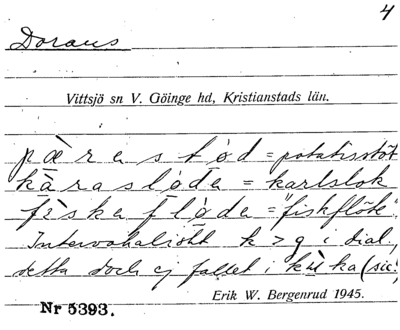 4
Vittsjö sn V. Göinge hd, Kristianstads län.
pæ̀rastød = potatisstöt
kàrasløda = karlslok
fìska fløda = "fiskflöte"
Intervokaliskt k > g i dial.,
detta dock ej fallet i kùka (sic!)
Erik W. Bergenrud 1945.
Nr 5393.